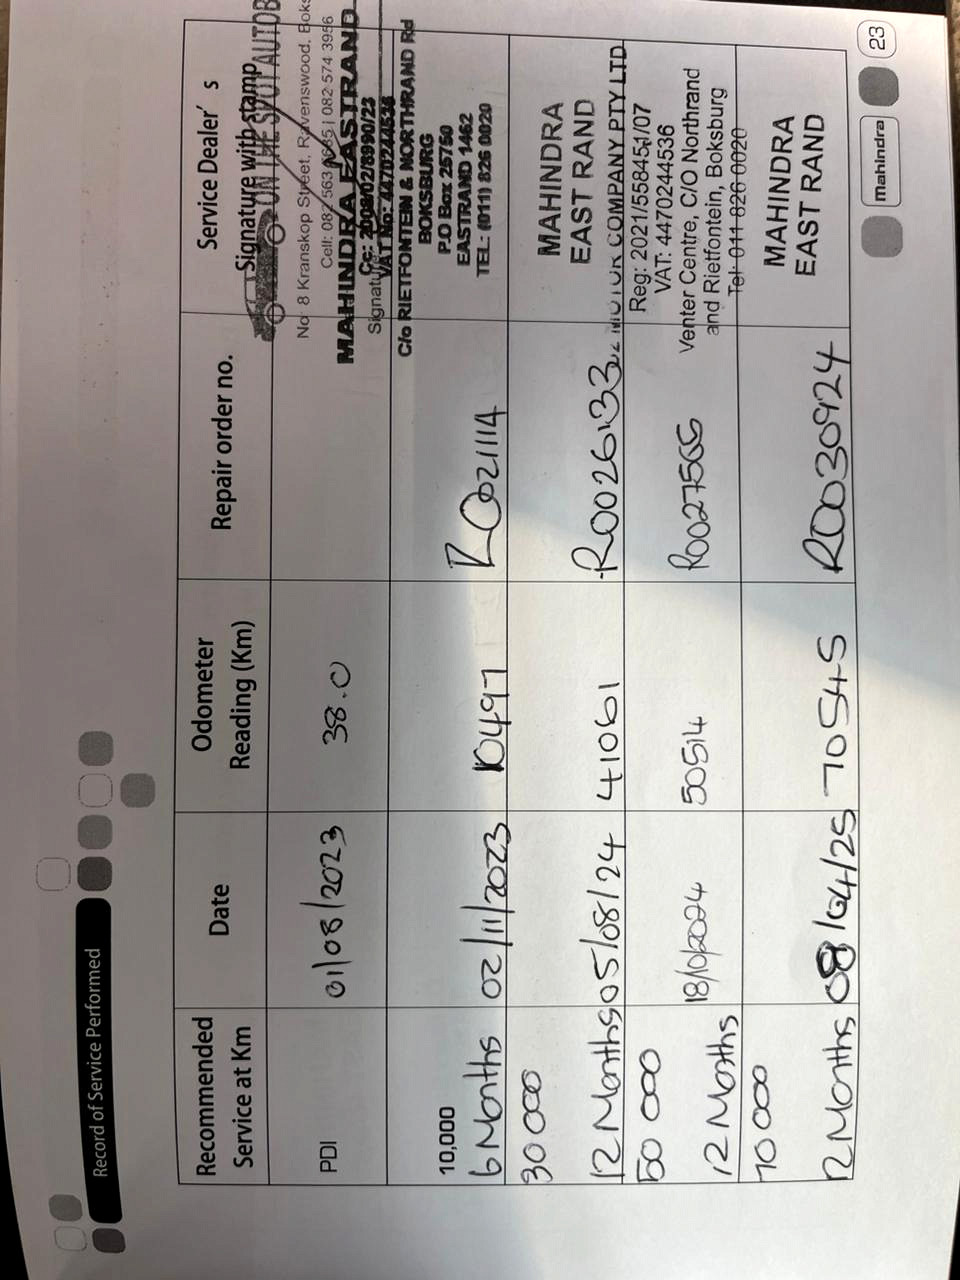 Record of Service Performed
Recommended Service at Km
Date
Odometer Reading (Km)
Repair order no.
Service Dealer's
Signature with stamp
ON THE SPOT AUTOB
No: 8 Kranskop Street, Ravenswood, Boks
Cell: 082 563 | 082 574 3956
PDI
01/08/2023
38.0
MAHINDRA EASTRAND
Cc: 2008/02/8990/23
VAT No: 4470244536
Signature
C/o RIETFONTEIN & NORTHRAND Rd
BOKSBURG
P.O Box 25750
EASTRAND 1462
TEL: (011) 826 0020
10,000
6 Months
02/11/2023
10497
R0021114
30 000
12 Months
05/08/24
41061
R0026133
MAHINDRA
EAST RAND
MOTOR COMPANY PTY LTD
Reg: 2021/558451/07
VAT: 4470244536
Venter Centre, C/O Northrand
and Rietfontein, Boksburg
Tel: 011 826 0020
50 000
12 Months
50514
70 000
12 Months
08/04/25
70545
R0030924
MAHINDRA
EAST RAND
Mahindra
23